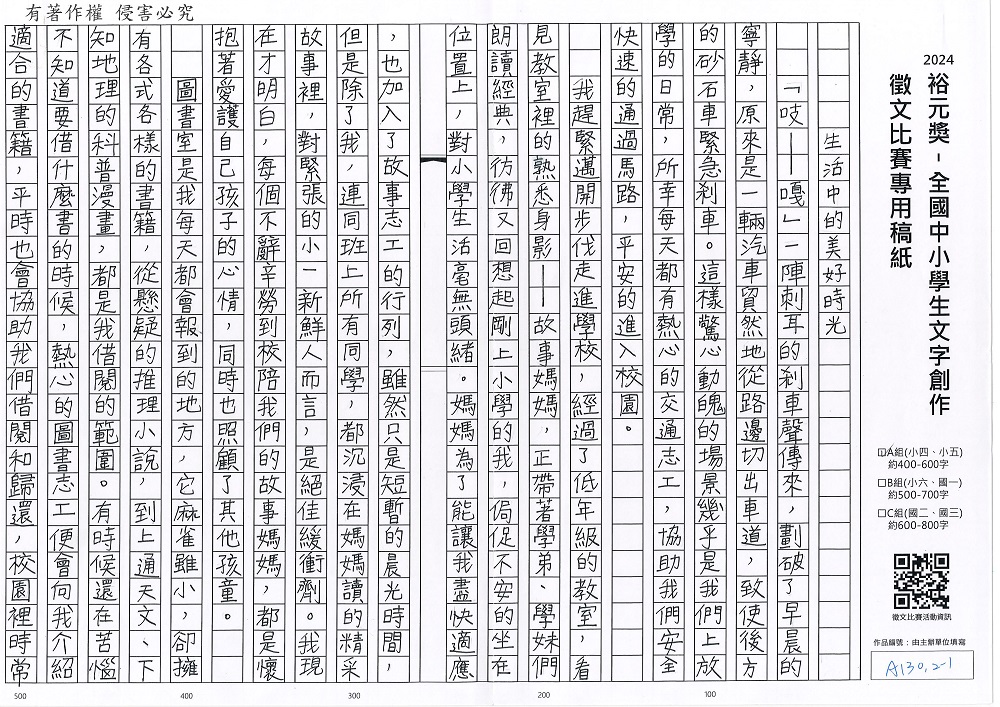 有著作權 侵害必究
2024
裕元獎-全國中小學生文字創作
徵文比賽專用稿紙
☑A組(小四、小五)
約400-600字
□B組(小六、國一)
約500-700字
□C組(國二、國三)
約600-800字
徵文比賽活動資訊
作品編號：由主辦單位填寫
A130.2-1
生活中的美好時光
「吱──嘎」一陣刺耳的剎車聲傳來，劃破了早晨的
寧靜，原來是一輛汽車貿然地從路邊切出車道，致使後方
的砂石車緊急剎車。這樣驚心動魄的場景幾乎是我們上放
學的日常，所幸每天都有熱心的交通志工，協助我們安全
快速的通過馬路，平安的進入校園。
我趕緊邁開步伐走進學校，經過了低年級的教室，看
見教室裡的熟悉身影──故事媽媽，正帶著學弟、學妹們
朗讀經典，彷彿又回想起剛上小學的我，侷促不安的坐在
位置上，對小學生活毫無頭緒。媽媽為了能讓我盡快適應
，也加入了故事志工的行列，雖然只是短暫的晨光時間，
但是除了我，連同班上所有同學，都沉浸在媽媽讀的精采
故事裡，對緊張的小一新鮮人而言，是絕佳緩衝劑。我現
在才明白，每個不辭辛勞到校陪我們的故事媽媽，都是懷
抱著愛護自己孩子的心情，同時也照顧了其他孩童。
圖書室是我每天都會報到的地方，它麻雀雖小，卻擁
有各式各樣的書籍，從懸疑的推理小說，到上通天文、下
知地理的科普漫畫，都是我借閱的範圍。有時候還在苦惱
不知道要借什麼書的時候，熱心的圖書志工便會向我介紹
適合的書籍，平時也會協助我們借閱和歸還，校園裡時常
100
200
300
400
500